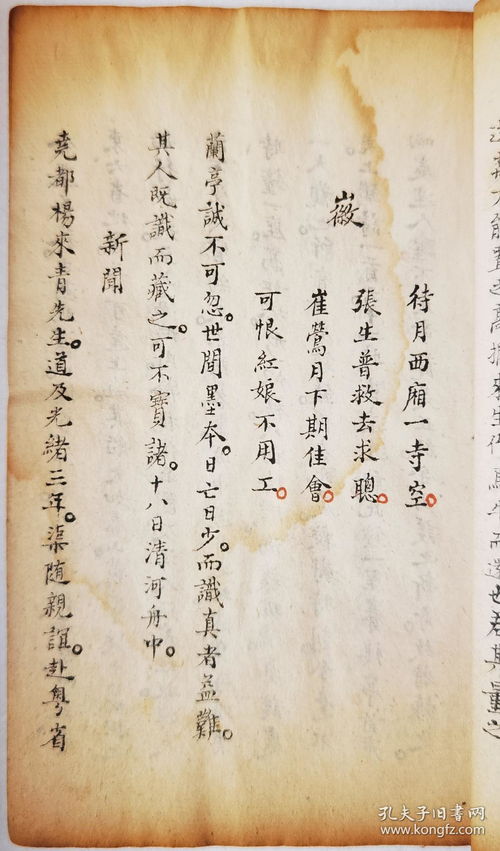 嶶
待月西廂一寺空。
張生普救去求聰。
崔鶯月下期佳會。
可恨紅娘不用工。
蘭亭誠不可忽。世間墨本。日亡日少。而識真者益難。
其人既識而藏之。可不寶諸。十八日清河舟中。
新聞
堯都楊來青先生。道及光緒三年。渠随親誼。赴粵省
孔夫子旧书网
www.kongfz.com